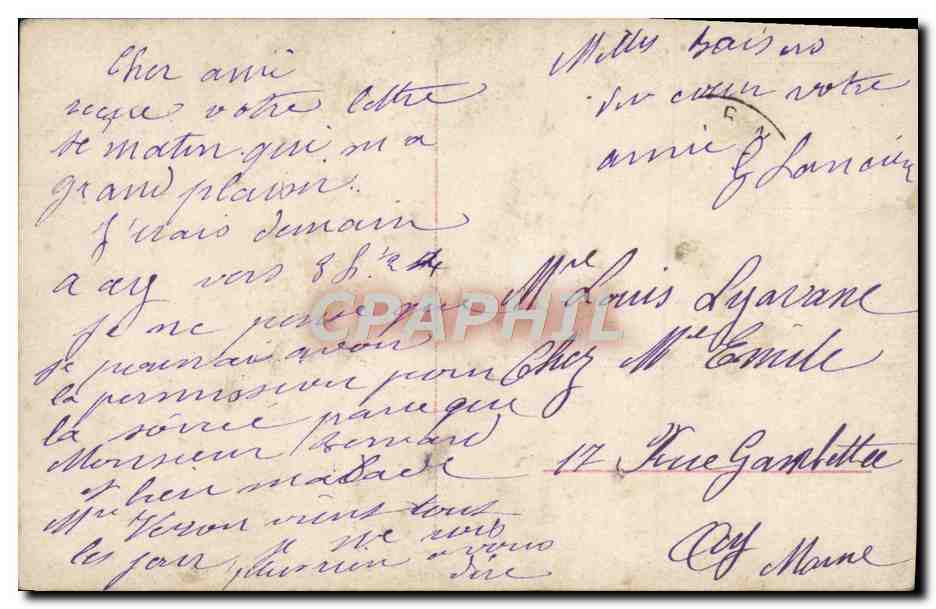 Cher ami
recue votre lettre
se matin qui m a
grand plaisir.
J'irais demain
a ay vers 3 h.
Je ne pense que
je pourrai avoir
la permission pour
la soirée parceque
Monsieur Bernard
et bien malade
Mr Veron vient tout
les jour je ne vois
plus rien a vous
dire
Milles baisers
du cœur votre
amie
CPAPHIL
Mr Louis Lyavane
Chez Mr Emile
17 Rue Gambettae
Ay Marne